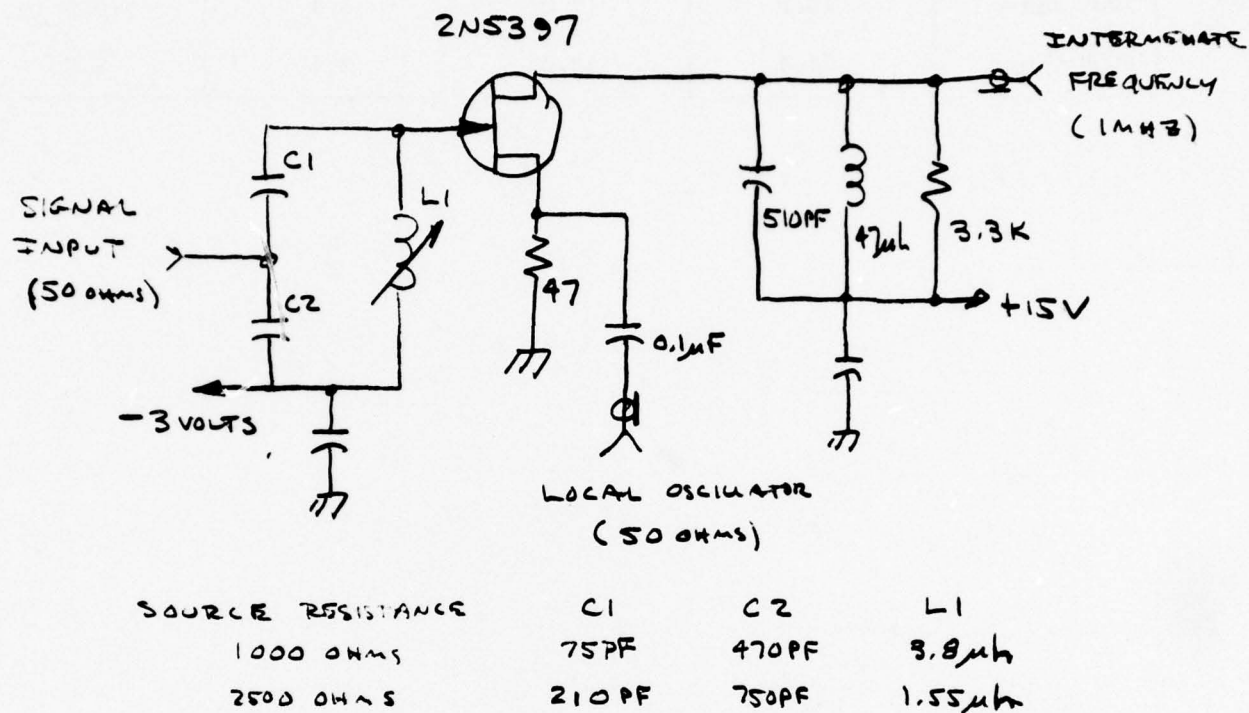 2N5397
INTERMEDIATE
FREQUENCY
(1MHZ)
C1
L1
SIGNAL
INPUT
(50 OHMS)
C2
510PF
47µh
3.3K
47
+15V
0.1µF
-3 VOLTS
LOCAL OSCILLATOR
(50 OHMS)
SOURCE RESISTANCE C1 C2 L1
1000 OHMS 75PF 470PF 3.8µh
2500 OHMS 210PF 750PF 1.55µh